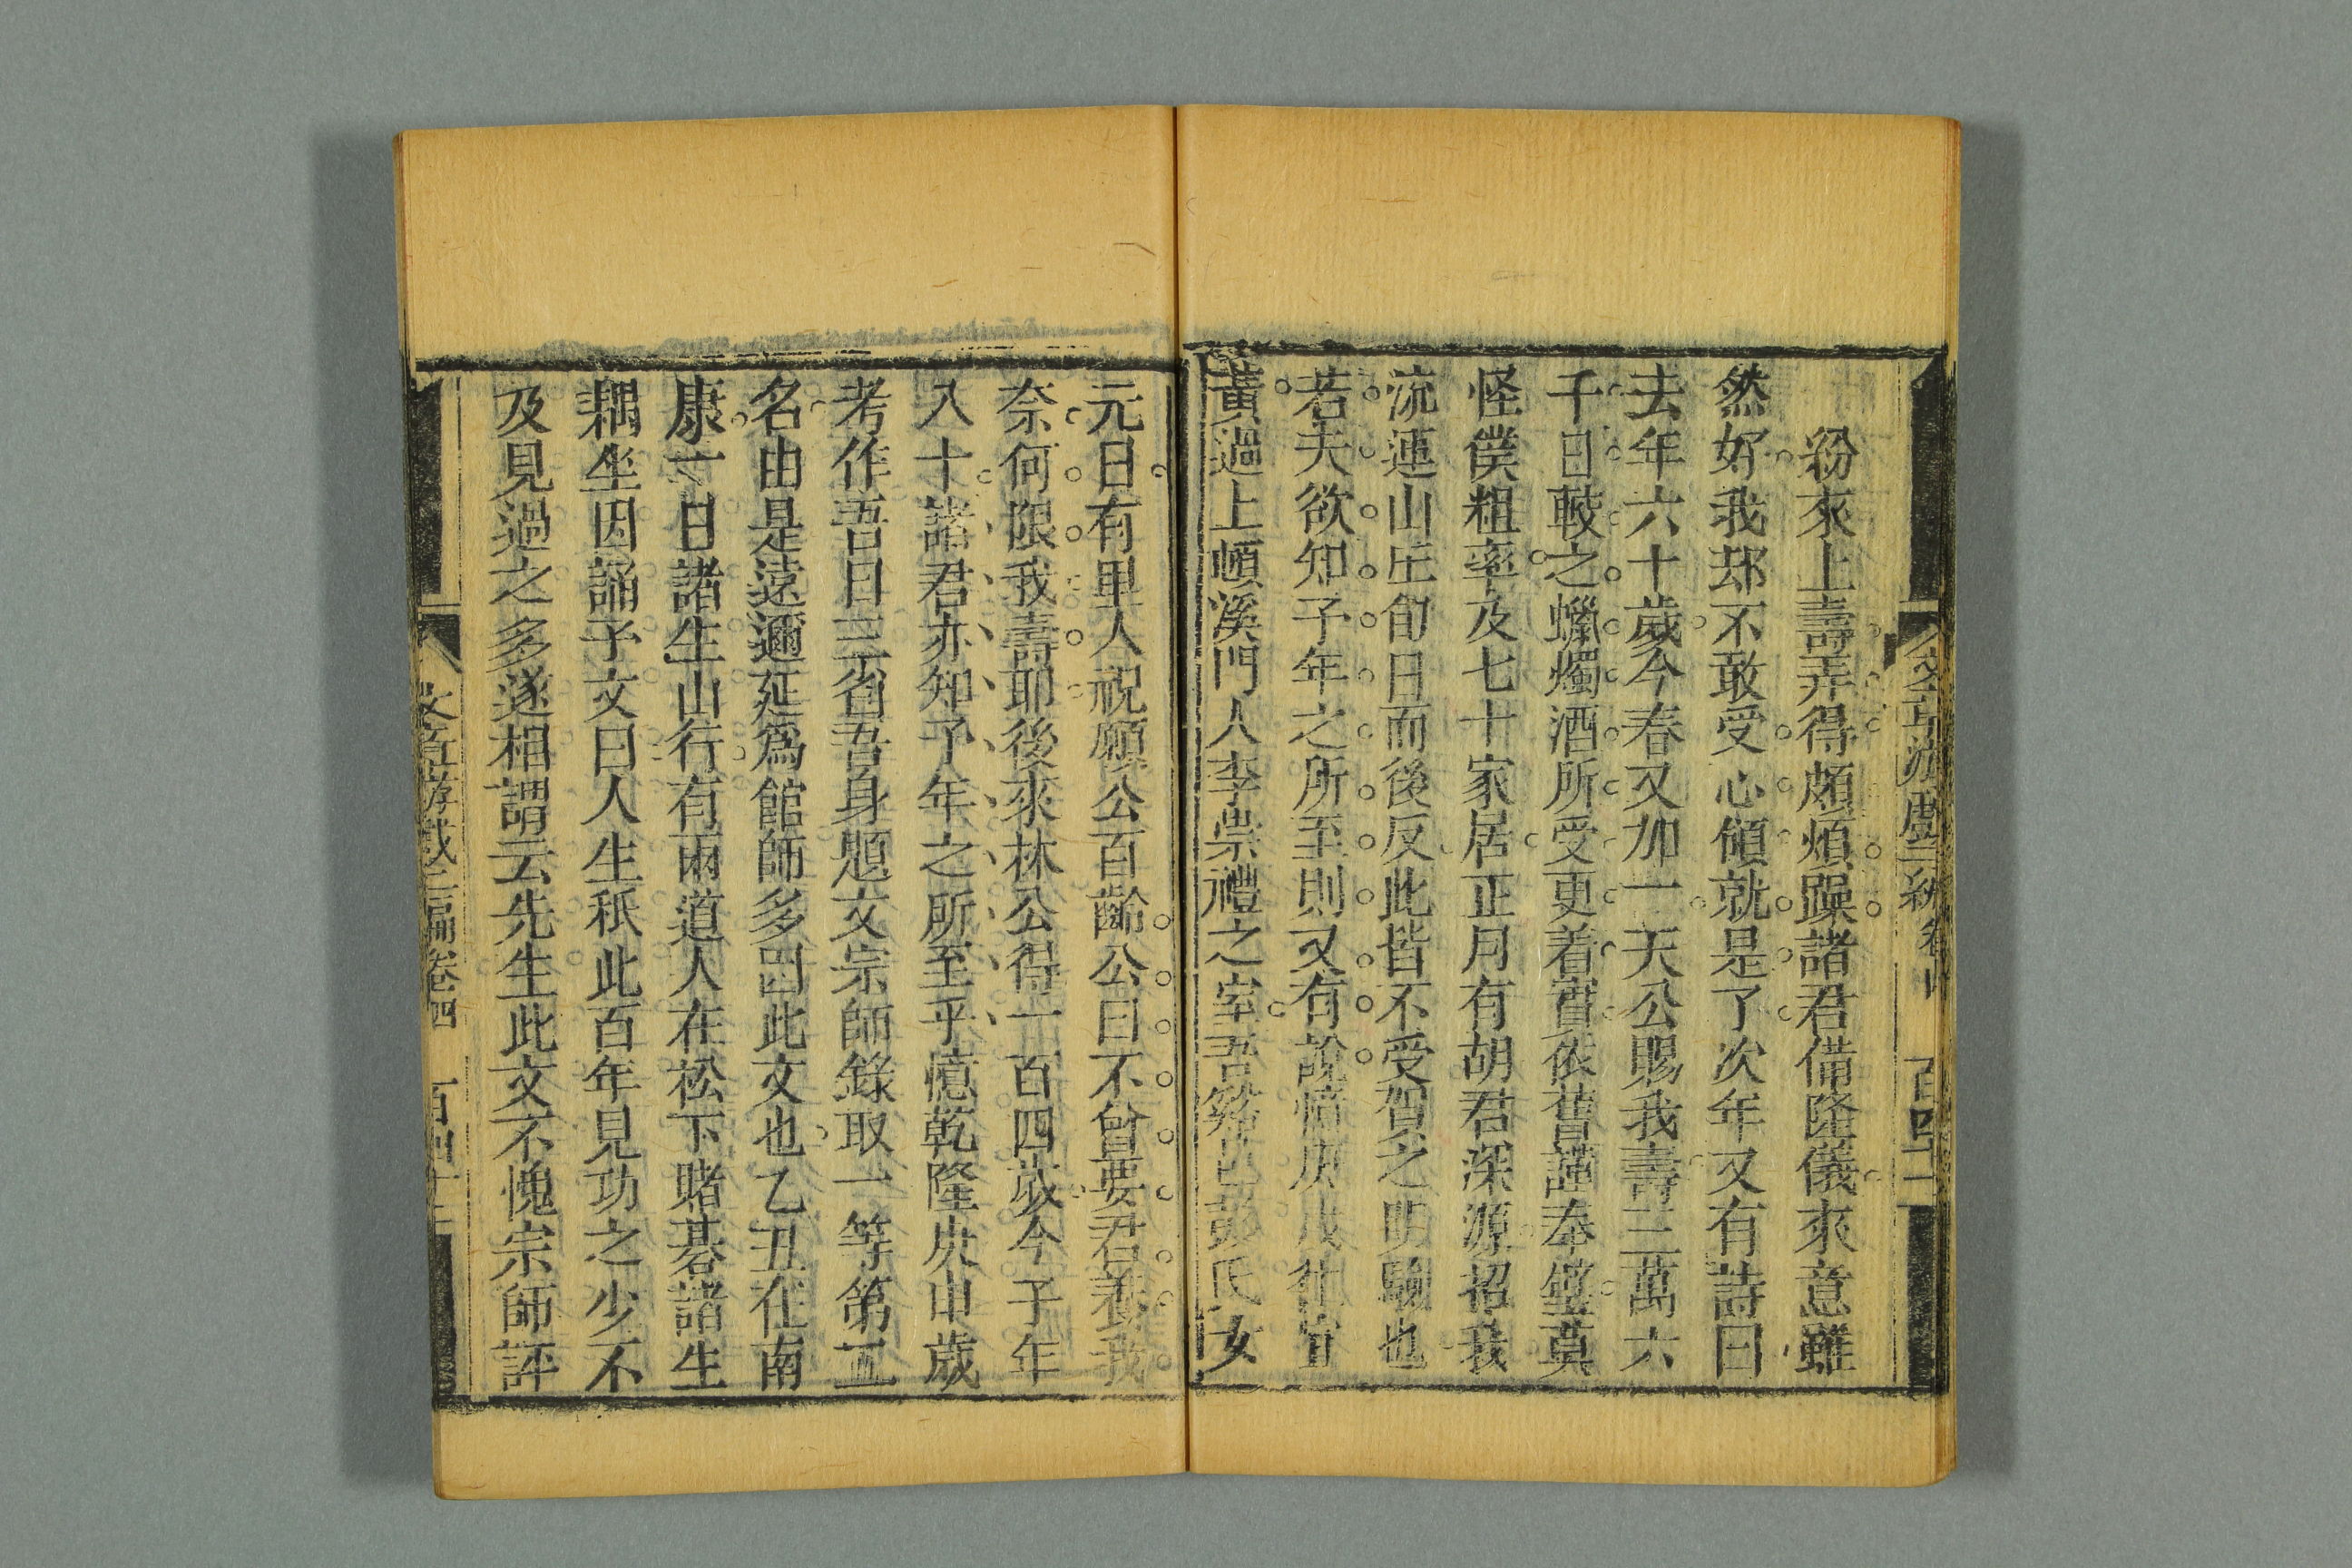 紛來上壽弄得頗煩躁諸君備隆儀來意雖
然好我却不敢受心領就是了次年又有詩曰
去年六十歲今春又加一天公賜我壽三萬六
千日較之蠟燭酒所受更着實依舊謹奉璧莫
怪僕粗率及七十家居正月有胡君深源招我
流連山庄旬日而後反此皆不受賀之明驗也
若夫欲知予年之所至則又有說憶庚戌往
黃過上頓溪門人李崇禮之室吾彭氏女
元日有里人祝願公百齡公曰不曾要君養我
奈何限我壽耶後來林公得一百四歲今予年
八十諸君亦知予年之所至乎憶乾隆庚申歲
考作吾日三省吾身題文宗師錄取一等第五
名由是遠邇延爲館師多因此文也乙丑在南
康一日諸生山行有兩道人在松下賭碁諸生
耦坐因誦予文曰人生秪此百年見功之少不
及見過之多遂相謂云先生此文不愧宗師評
文章游戲二編卷四 百四十